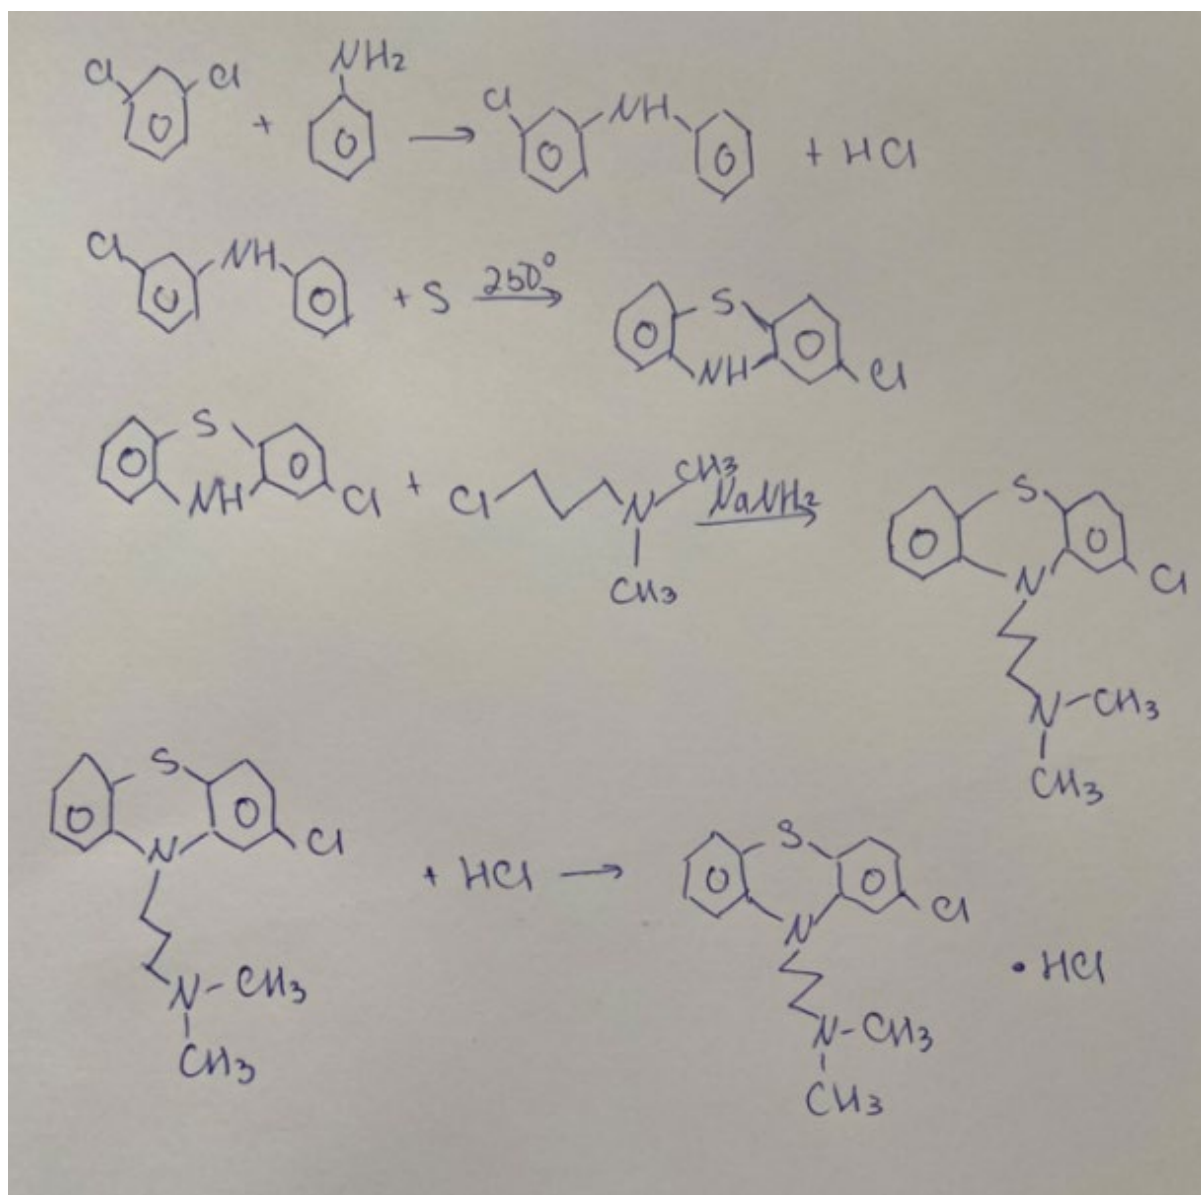 Cl Cl + NH2 → Cl NH + HCl
Cl NH + S 250° → S NH Cl
S NH Cl + Cl N CH3 CH3 NaNH2 → S N Cl N-CH3 CH3
S N Cl N-CH3 CH3 + HCl → S N Cl N-CH3 CH3 • HCl